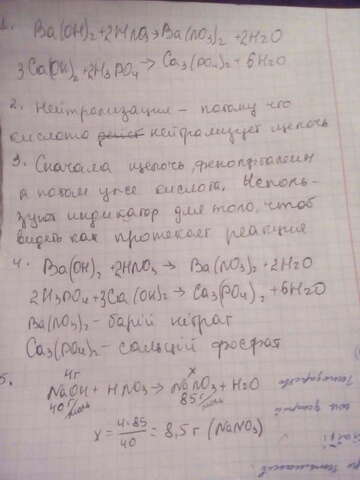 1. Ba(OH)₂+2HNO₃→Ba(NO₃)₂+2H₂O
3Ca(OH)₂+2H₃PO₄→Ca₃(PO₄)₂+6H₂O
2. Нейтрализация – потому что
кислота нейтрализует щелочь
3. Сначала щелочь, фенолфталеин
а потом уже кислота. Исполь-
зуют индикатор для того, чтоб
видеть как протекает реакция
4. Ba(OH)₂+2HNO₃→Ba(NO₃)₂+2H₂O
2H₃PO₄+3Ca(OH)₂→Ca₃(PO₄)₂+6H₂O
Ba(NO₃)₂-барий нитрат
Ca₃(PO₄)₂-кальций фосфат
4г x
5. NaOH+HNO₃→NaNO₃+H₂O
40г/моль 85г/моль
x=4·85/40=8,5г (NaNO₃)